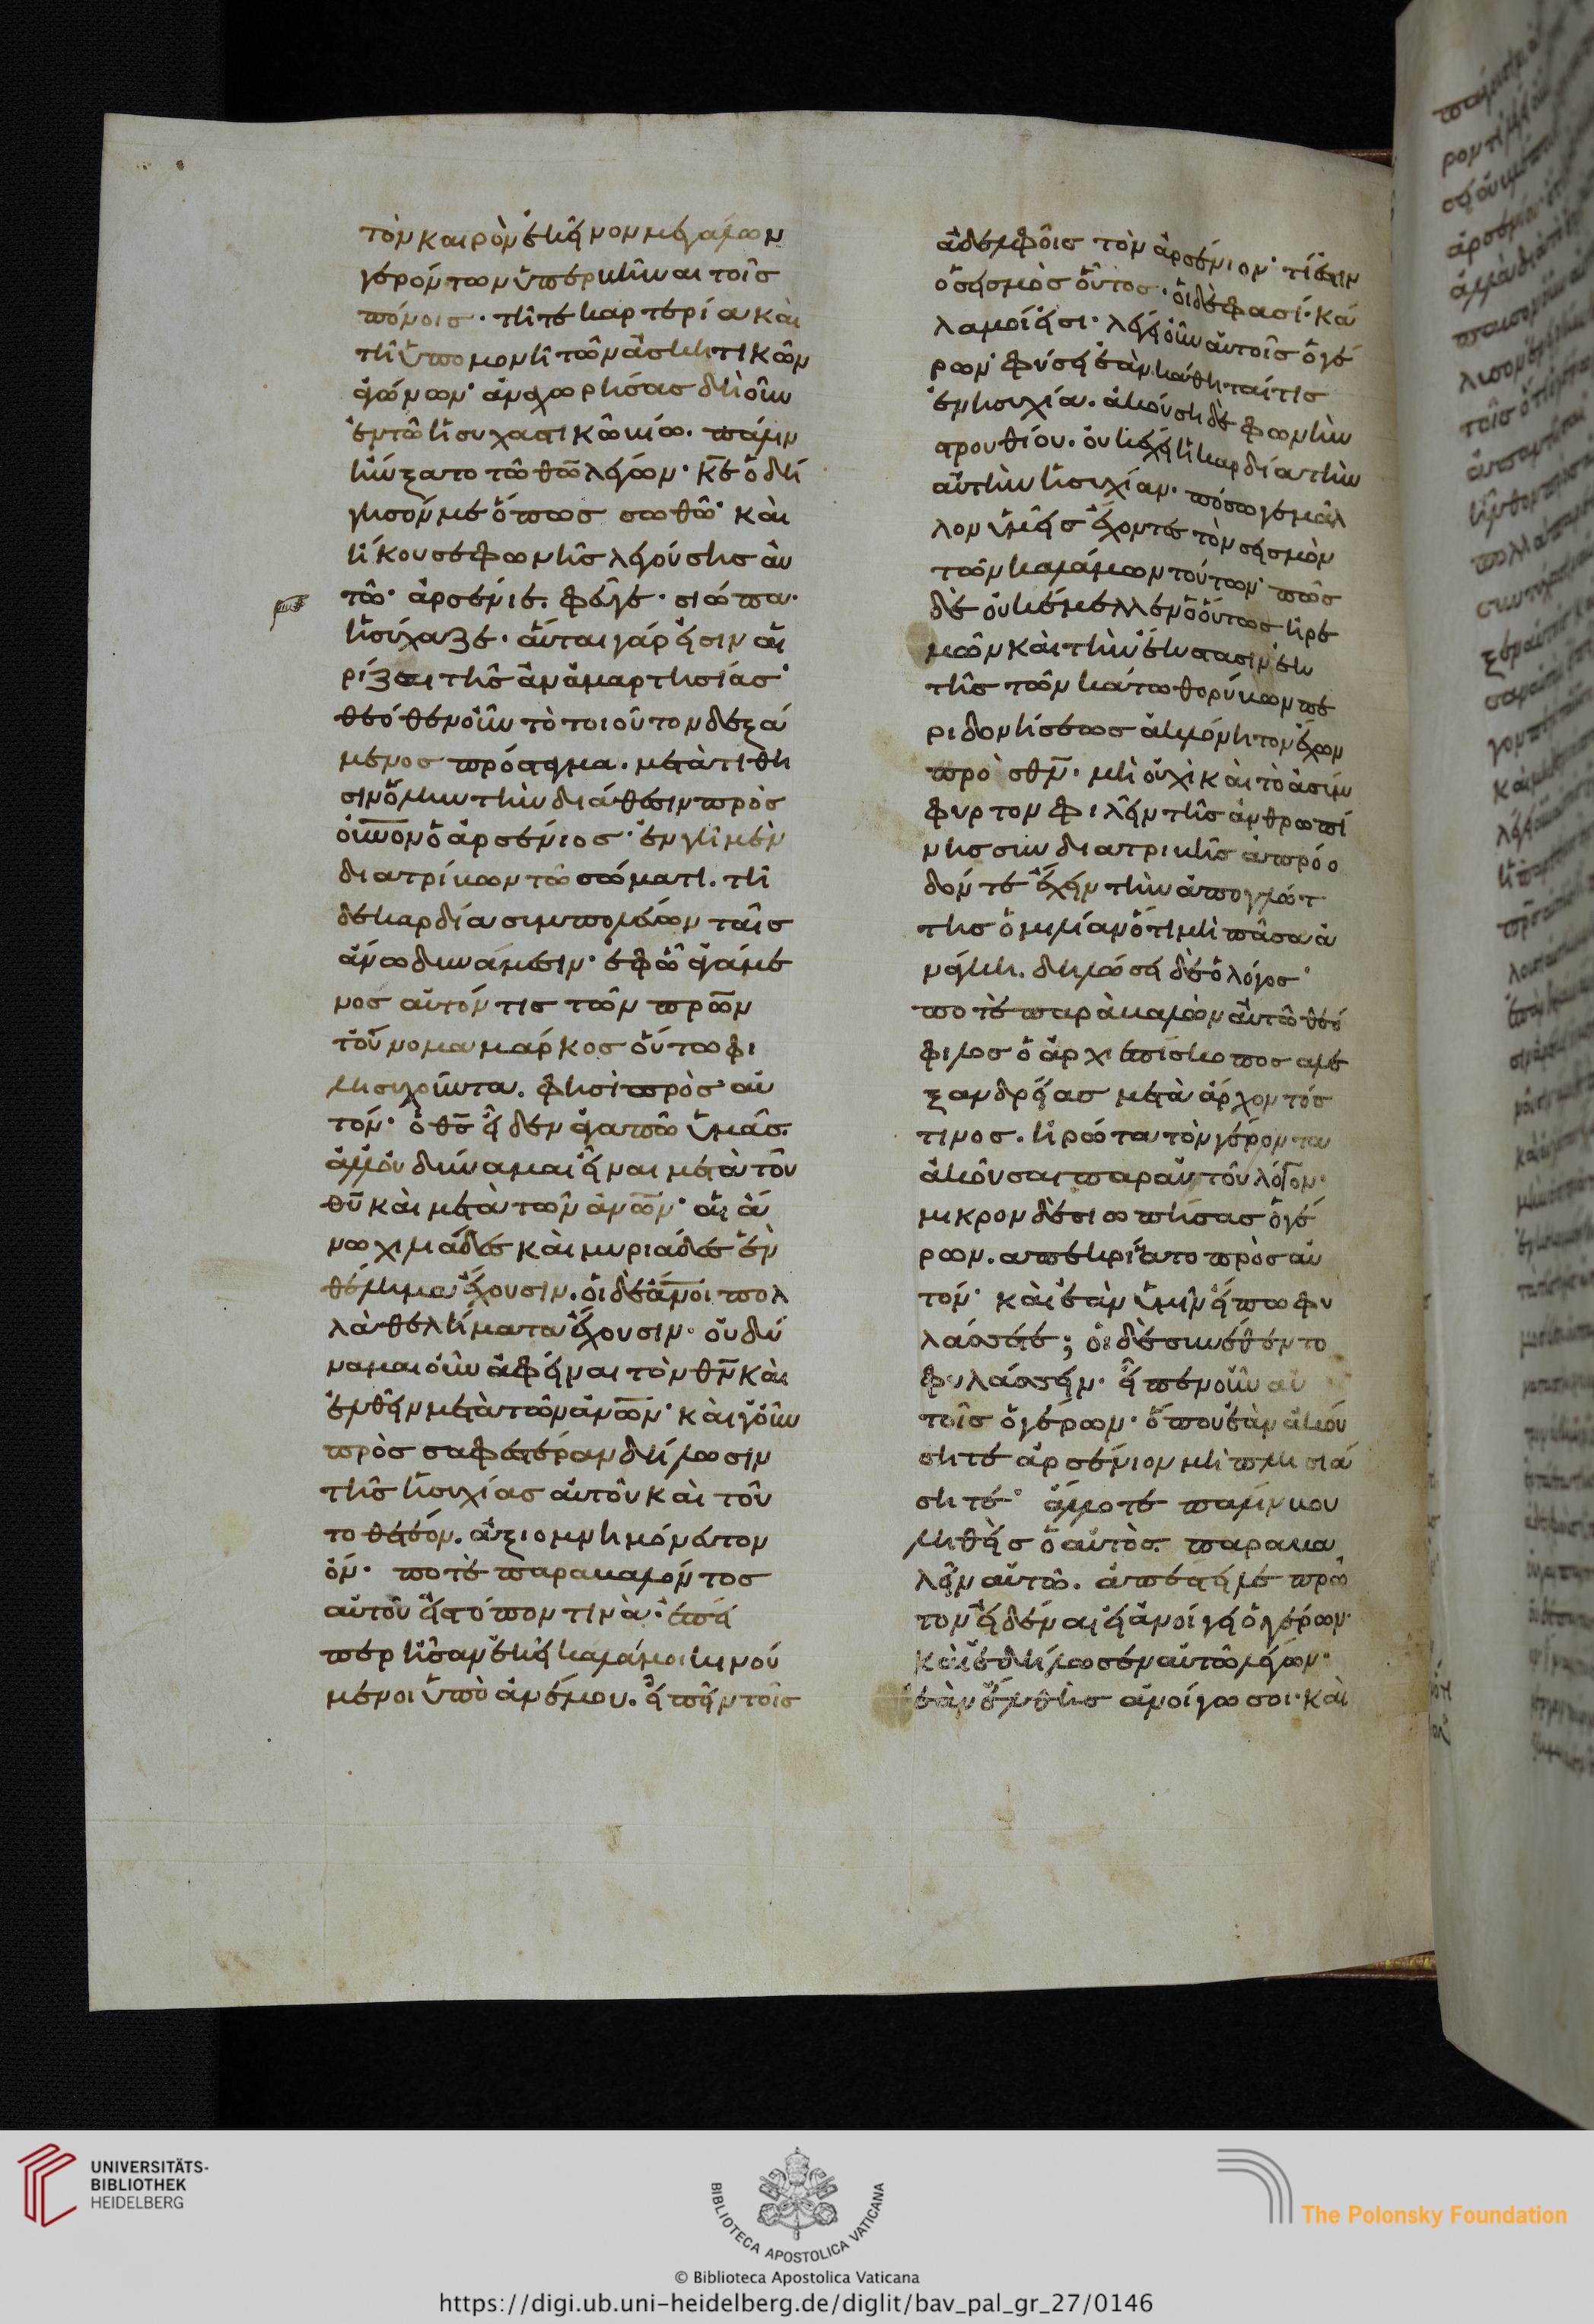 τὸν καιρὸν ἐκεῖνον μεγάλων
γερόντων ὑπερκεῖναι τοῖς
πόνοις· τῆ τε καρτερία καὶ
τῆ ὑπομονῆ τῶν ἀσκητικῶν
ἀγώνων· ἀναχωρήσας δὴ οὖν
ἐν τῶ ἡσυχαστικῶ βίω. πάλιν
ηὔξατο τῶ θῶ λέγων· κε ὁδή
γησόν με ὅπως σωθῶ· καὶ
ἤκουσε φωνῆς λεγούσης αὐ
τῶ· ἀρσένιε. φεῦγε· σιώπα·
ἡσύχαζε· αὗται γάρ εἰσιν αἱ
ρίζαι τῆς ἀναμαρτησίας·
θεόθεν οὖν τὸ τοιοῦτον δεξά
μενος πρόσταγμα. μετατίθη
σιν ὅλην τὴν διάθεσιν πρὸς
οὐνον ὁ ἀρσένιος· ἐν γῆ μὲν
διατρίβων τῶ σώματι. τῆ
δὲ καρδία συμπολεύων ταῖς
ἄνω δυνάμεσιν· ἐφ' ὧ ἀγάμε
νος αὐτόν τις τῶν πρων
τοὔνομα μάρκος οὕτω φι
λησυχοῦντα. φησὶ πρὸς αὐ
τόν· ὁ θς εἶδεν ἀγαπῶ ὑμᾶς.
ἀλλ' οὐ δύναμαι εἶναι μετὰ τοῦ
θυ καὶ μετὰ τῶν ἀνων· αἱ ἄ
νω χιλιάδες καὶ μυριάδες ἓν
θέλημα ἔχουσιν. οἱ δὲ ἀνοι πολ
λὰ θελήματα ἔχουσιν· οὐ δύ
ναμαι οὖν ἀφεῖναι τὸν θν καὶ
ἐλθεῖν μετὰ τῶν ἀνων· καὶ γοῦν
πρὸς σαφεστέραν δήλωσιν
τῆς ἡσυχίας αὐτοῦ καὶ τοῦ
το θετέον. ἀξιομνημόνευτον
ὄν· ποτὲ παραβαλόντος
αὐτοῦ εἰς τόπον τινὰ· ἐπεί
περ ἦσαν ἐκεῖ κάλαμοι κινού
μενοι ὑπὸ ἀνέμου. εἶπεν τοῖς
ἀδελφοῖς τὸν ἀρσένιον· τί ἐστιν
ὁ σεισμὸς οὗτος· οἱ δὲ φασί· κά
λαμοί εἰσι· λέγει οὖν αὐτοῖς ὁ γέ
ρων· φύσει ἐὰν κάθηταί τις
ἐν ἡσυχία. ἀκούση δὲ φωνὴν
στρουθίου. οὐκ ἔχει ἡ καρδία τὴν
αὐτὴν ἡσυχίαν· πόσω γε μᾶλ
λον ὑμεῖς ἔχοντες τὸν σεισμὸν
τῶν καλάμων τούτων· πῶς
δὲ οὐκ ἔμελλεν ὁ οὕτως ἠρε
μῶν καὶ τὴν ἔκστασιν ἐκ
τῆς τῶν κάτω θορύβων πε
ριδονήσεως ἀκλόνητον ἔχων
πρὸς θν· μὴ οὐχὶ καὶ τὸ ἀσύμ
φυρτον φιλεῖν τῆς ἀνθρωπί
νης συνδιατριβῆς ἀπρόο
δόν τε ἔχειν τὴν ἀπὸ γλώτ
της ὁμιλίαν ὅτι μὴ πᾶσα ἀ
νάγκη. δηλώσει δὲ ὁ λόγος·
ποτὲ παραβαλὼν αὐτῶ θεό
φιλος ὁ ἀρχιεπίσκοπος ἀλε
ξανδρείας μετὰ ἄρχοντός
τινος. ἠρώτα τὸν γέροντα
ἀκοῦσαι παρ' αὐτοῦ λόγον·
μικρον δὲ σιωπήσας ὁ γέ
ρων. απεκρίνατο πρὸς αὐ
τόν· καὶ ἐὰν ὑμῖν εἴπω φυ
λάσσετε; οἱ δὲ συνέθεντο
φυλάσσειν· εἶπεν οὖν αὐ
τοῖς ὁ γέρων· ὅπου ἐὰν ἀκού
σητε ἀρσένιον μὴ πλησιά
σητε· ἄλλοτε πάλιν βου
ληθεὶς ὁ αὐτὸς παραβα
λεῖν αὐτῶ. ἀπέστειλε πρῶ
τον εἰδέναι εἰ ἀνοίγει ὁ γέρων·
καὶ ἐδήλωσεν αὐτῶ λέγων·
ἐὰν ἔλθης ἀνοίγω σοι· καὶ
UNIVERSITÄTS-
BIBLIOTHEK
HEIDELBERG
BIBLIOTECA APOSTOLICA VATICANA
The Polonsky Foundation
© Biblioteca Apostolica Vaticana
https://digi.ub.uni-heidelberg.de/diglit/bav_pal_gr_27/0146